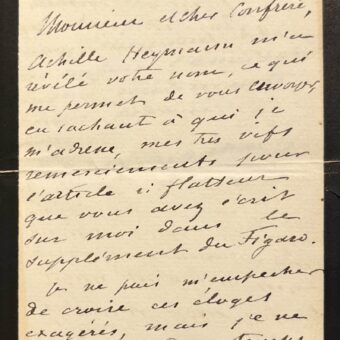 Monsieur et cher Confrère,
Achille Heymann m'a
révélé votre nom, ce qui
me permet de vous envoyer,
en sachant à qui je
m'adresse, mes très vifs
remerciements pour
l'article si flatteur
que vous avez écrit
sur moi dans le
supplément du Figaro.
Je ne puis m'empêcher
de croire ces éloges
exagérés, mais je ne